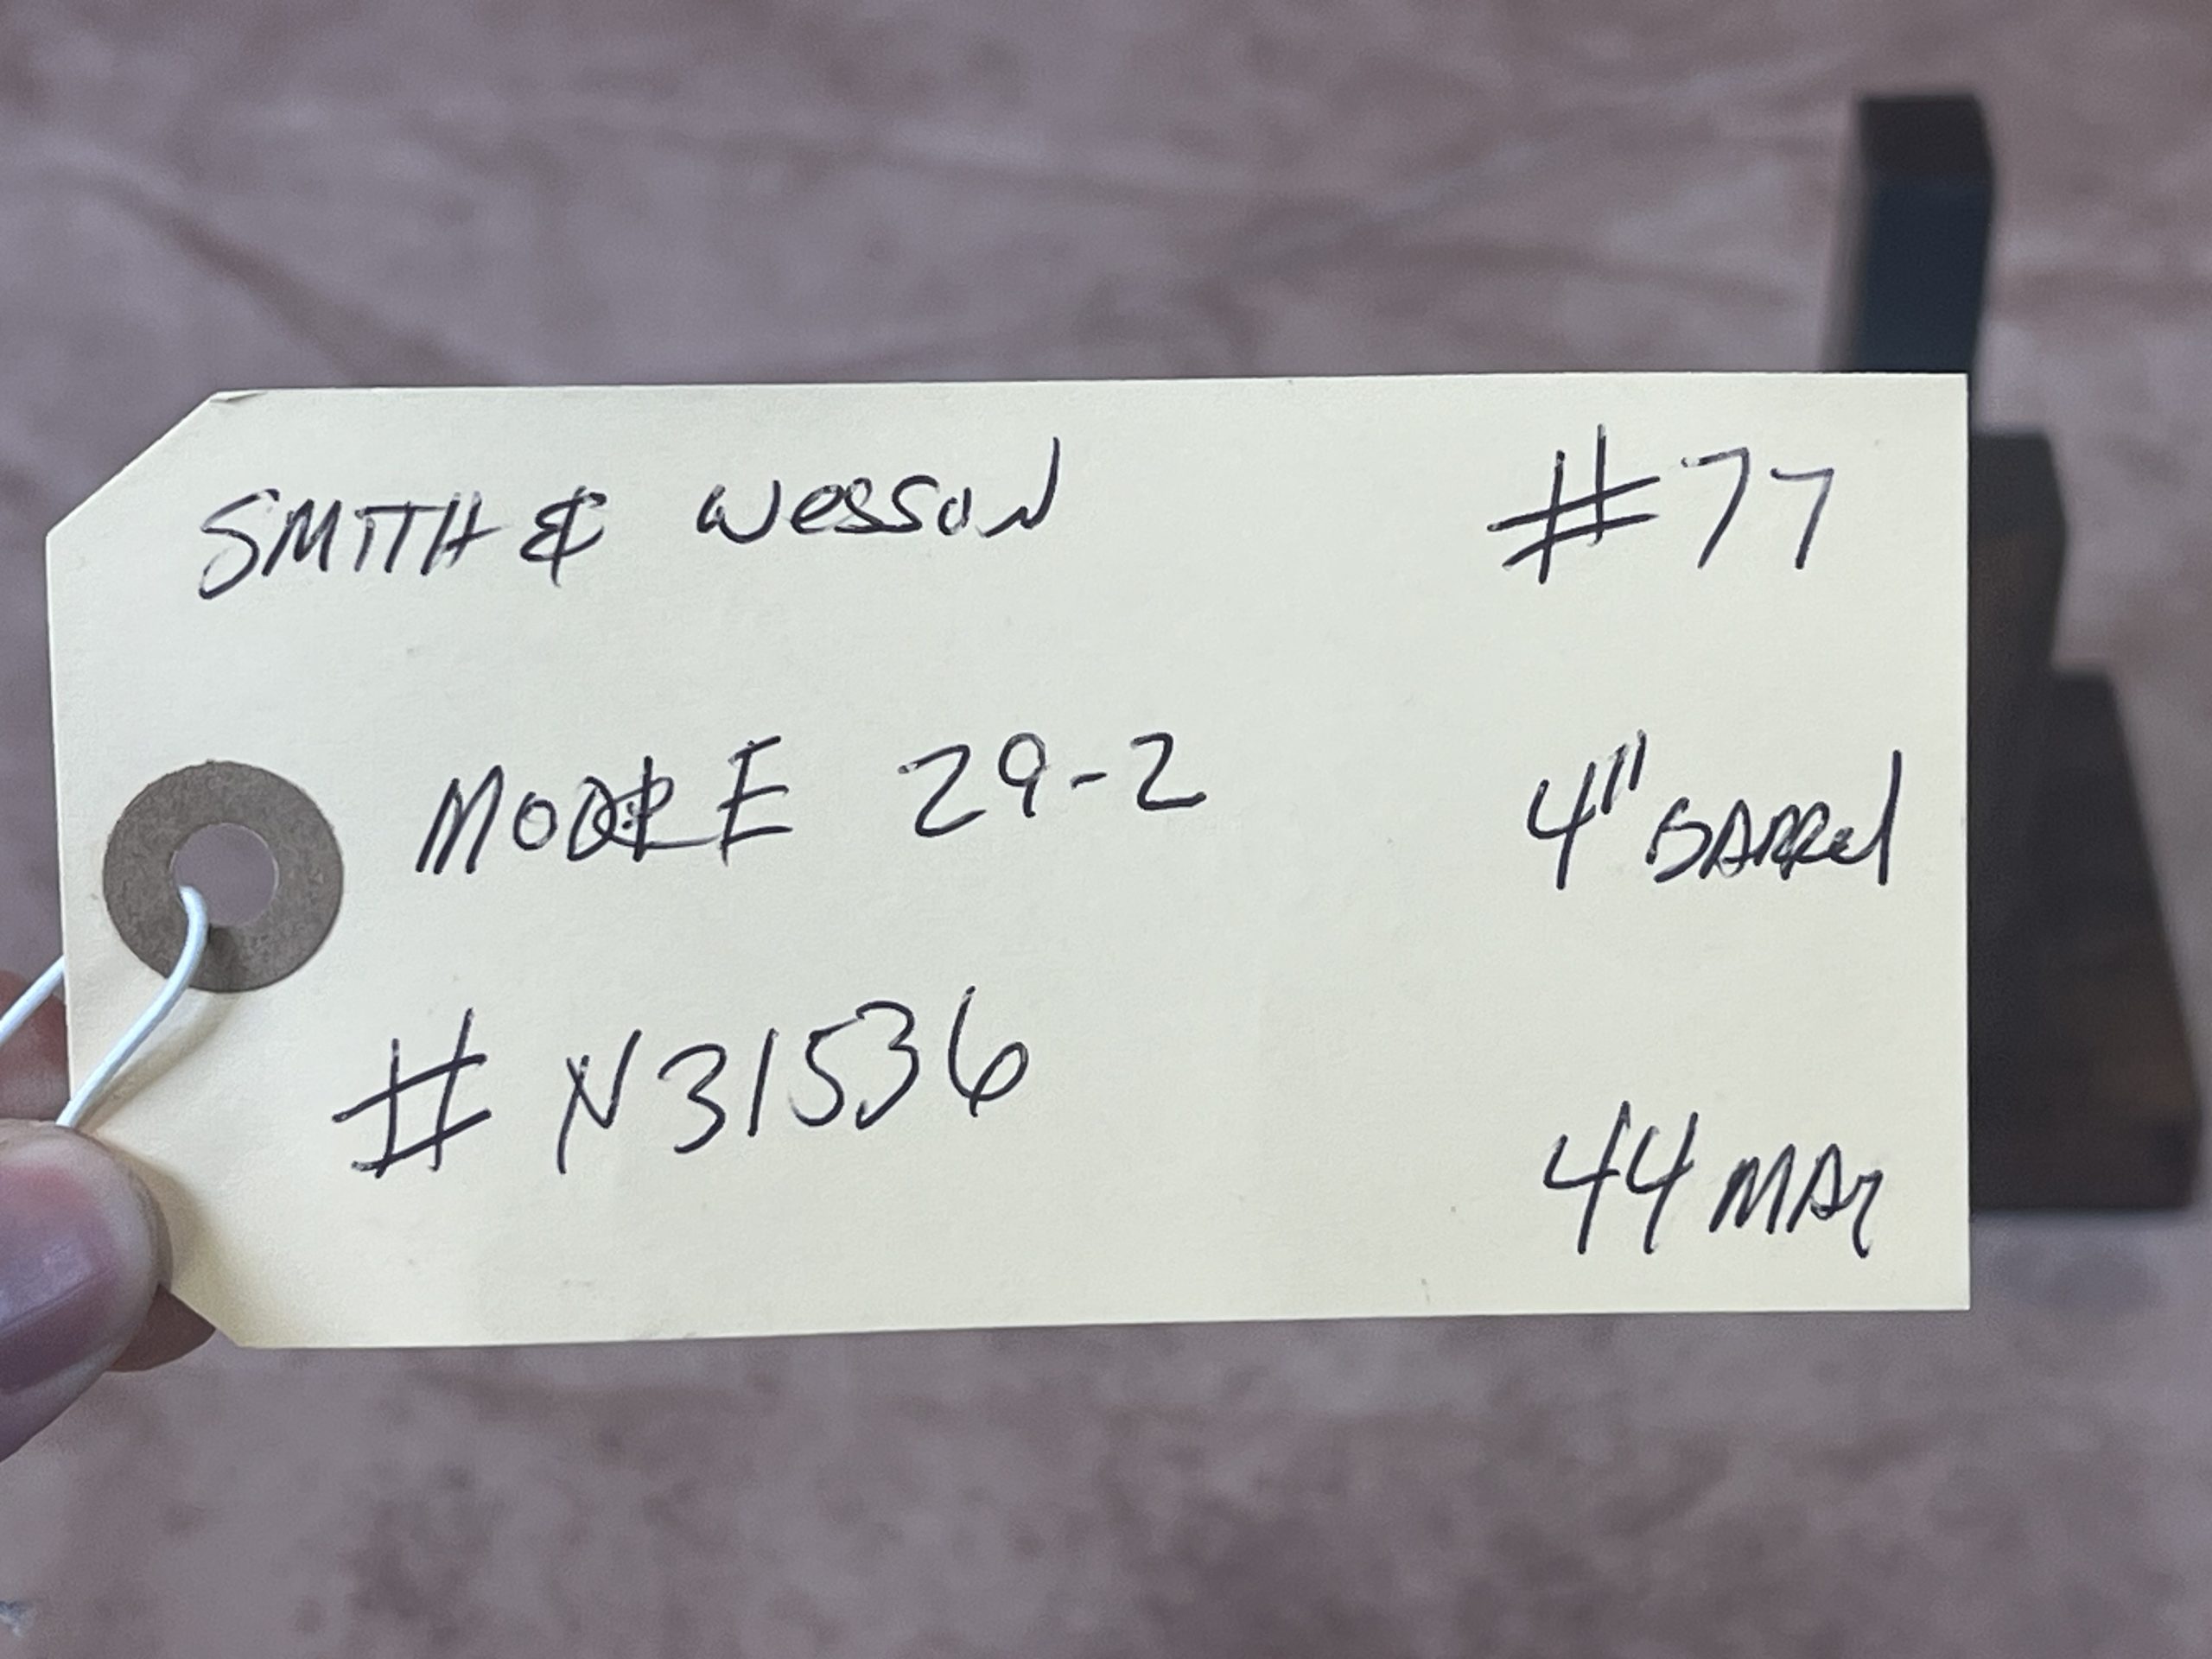 SMITH & Wesson #77
MODEL 29-2 4" BARRel
# N31536
44 MAG